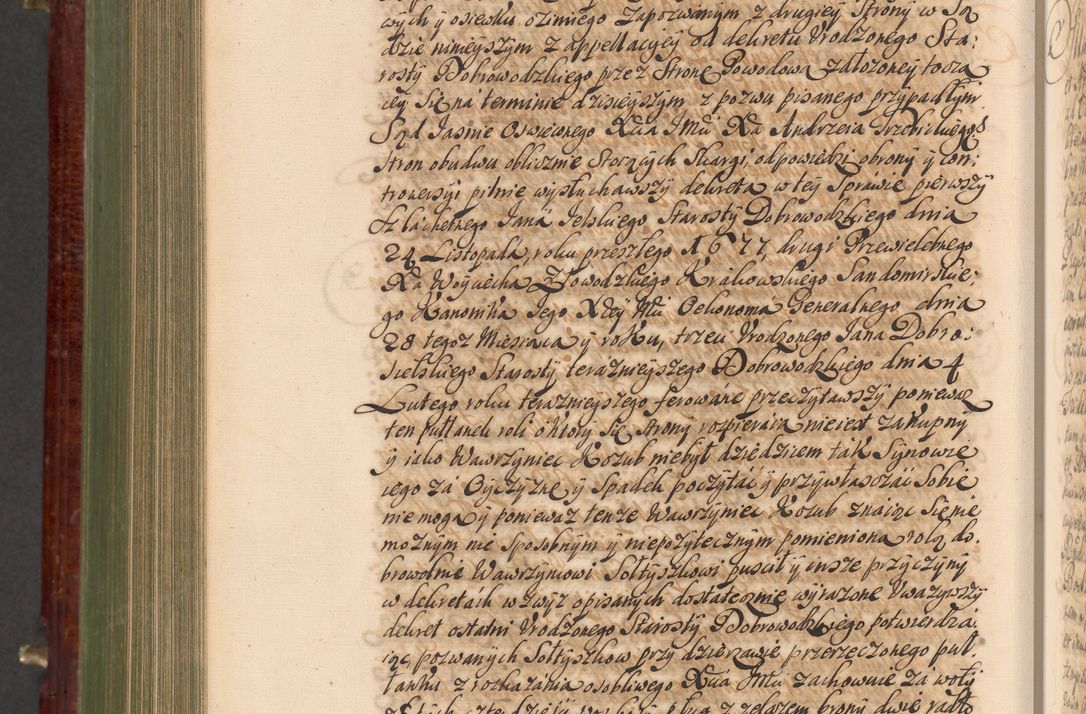 wych y osiewku ozimiego zapozwanym z drugiey strony w Są
dzie nineyszym z appellacyey od dekretu Urodzonego Sta:
rosty Dobrowodzkiego przez Stronę Powodową załozoney tocza
cey się na terminie dzisieyszym z pozwu pisanego przypadłym
Sąd Jasnie Oswieconego Xcia JMci Xa Andrzeia Trzebickiego
stron obudwu oblicznie stoiących skargi, odpowiedzi obrony y con:
trowersyi pilnie wysłuchawszy dekreta w tey sprawie pierwszy
szlachetnego Jana Jelskiego Starosty Dobrowodzkiego dnia
24 Listopada, roku przeszłego 1677, drugi Przewielebnego
Xa Woyciecha Zrowodzkiego Krakowskiego Sandomirskie:
go Kanonika Jego Xcey Mci Oekonoma Generalnego dnia
28 tegoz Miesiąca y roku, trzeci Urodzonego Jana Dobro:
sielskiego Starosty teraznieyszego Dobrowodzkiego dnia 4
Lutego roku teraznieyszego ferowane przeczytawszy poniewaz
ten pułłanek roli o ktory się strony rozpieraią nieiest zakupny
y iako Wawrzyniec Kozub niebył dziedzicem tak Synowie
iego za Oyczyznę y Spadek poczytać y przywłaszczać sobie
nie mogą y poniewaz tenze Wawrzyniec Kozub znaiąc się nie
moznym nie sposobnym y niepozytecznym pomienioną rolą do:
browolnie Wawrzyncowi Sołtyszkowi puscił y insze przyczyny
w dekretach wzwyz opisanych dostatecznie wyrazone Uwazywszy
dekret ostatni Urodzonego Starosty Dobrowodzkiego potwierdza
iąc, pozwanych Sołtyszkow przy dzierzawie przerzeczonego puł
łanku z roskazania osobliwego Xcia JMci zachowuie za woły